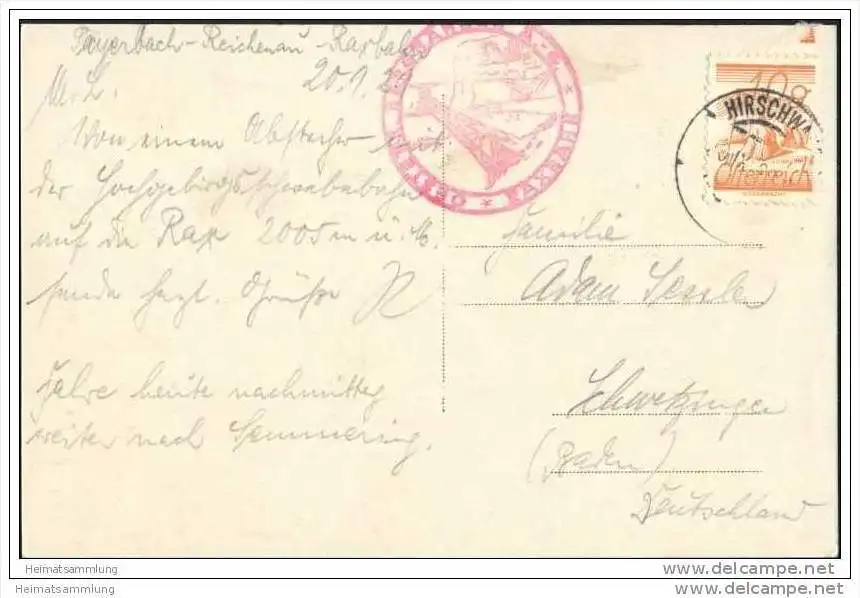 Payerbach-Reichenau-Raxbahn
M. L. 20.9.2
Von einem Abstecher mit
der Hochgebirgsschwebebahn
auf die Rax 2005m ü. M.
sende herzl. Grüße
Fahre heute nachmittag
weiter nach Semmering.
RAXBAHN
10g
HIRSCHWA
Österreich
Familie
Adam Sessler
Schwetzingen
(Baden)
Deutschland
Heimatsammlung
Heimatsammlung
www.delcampe.net
www.delcampe.net